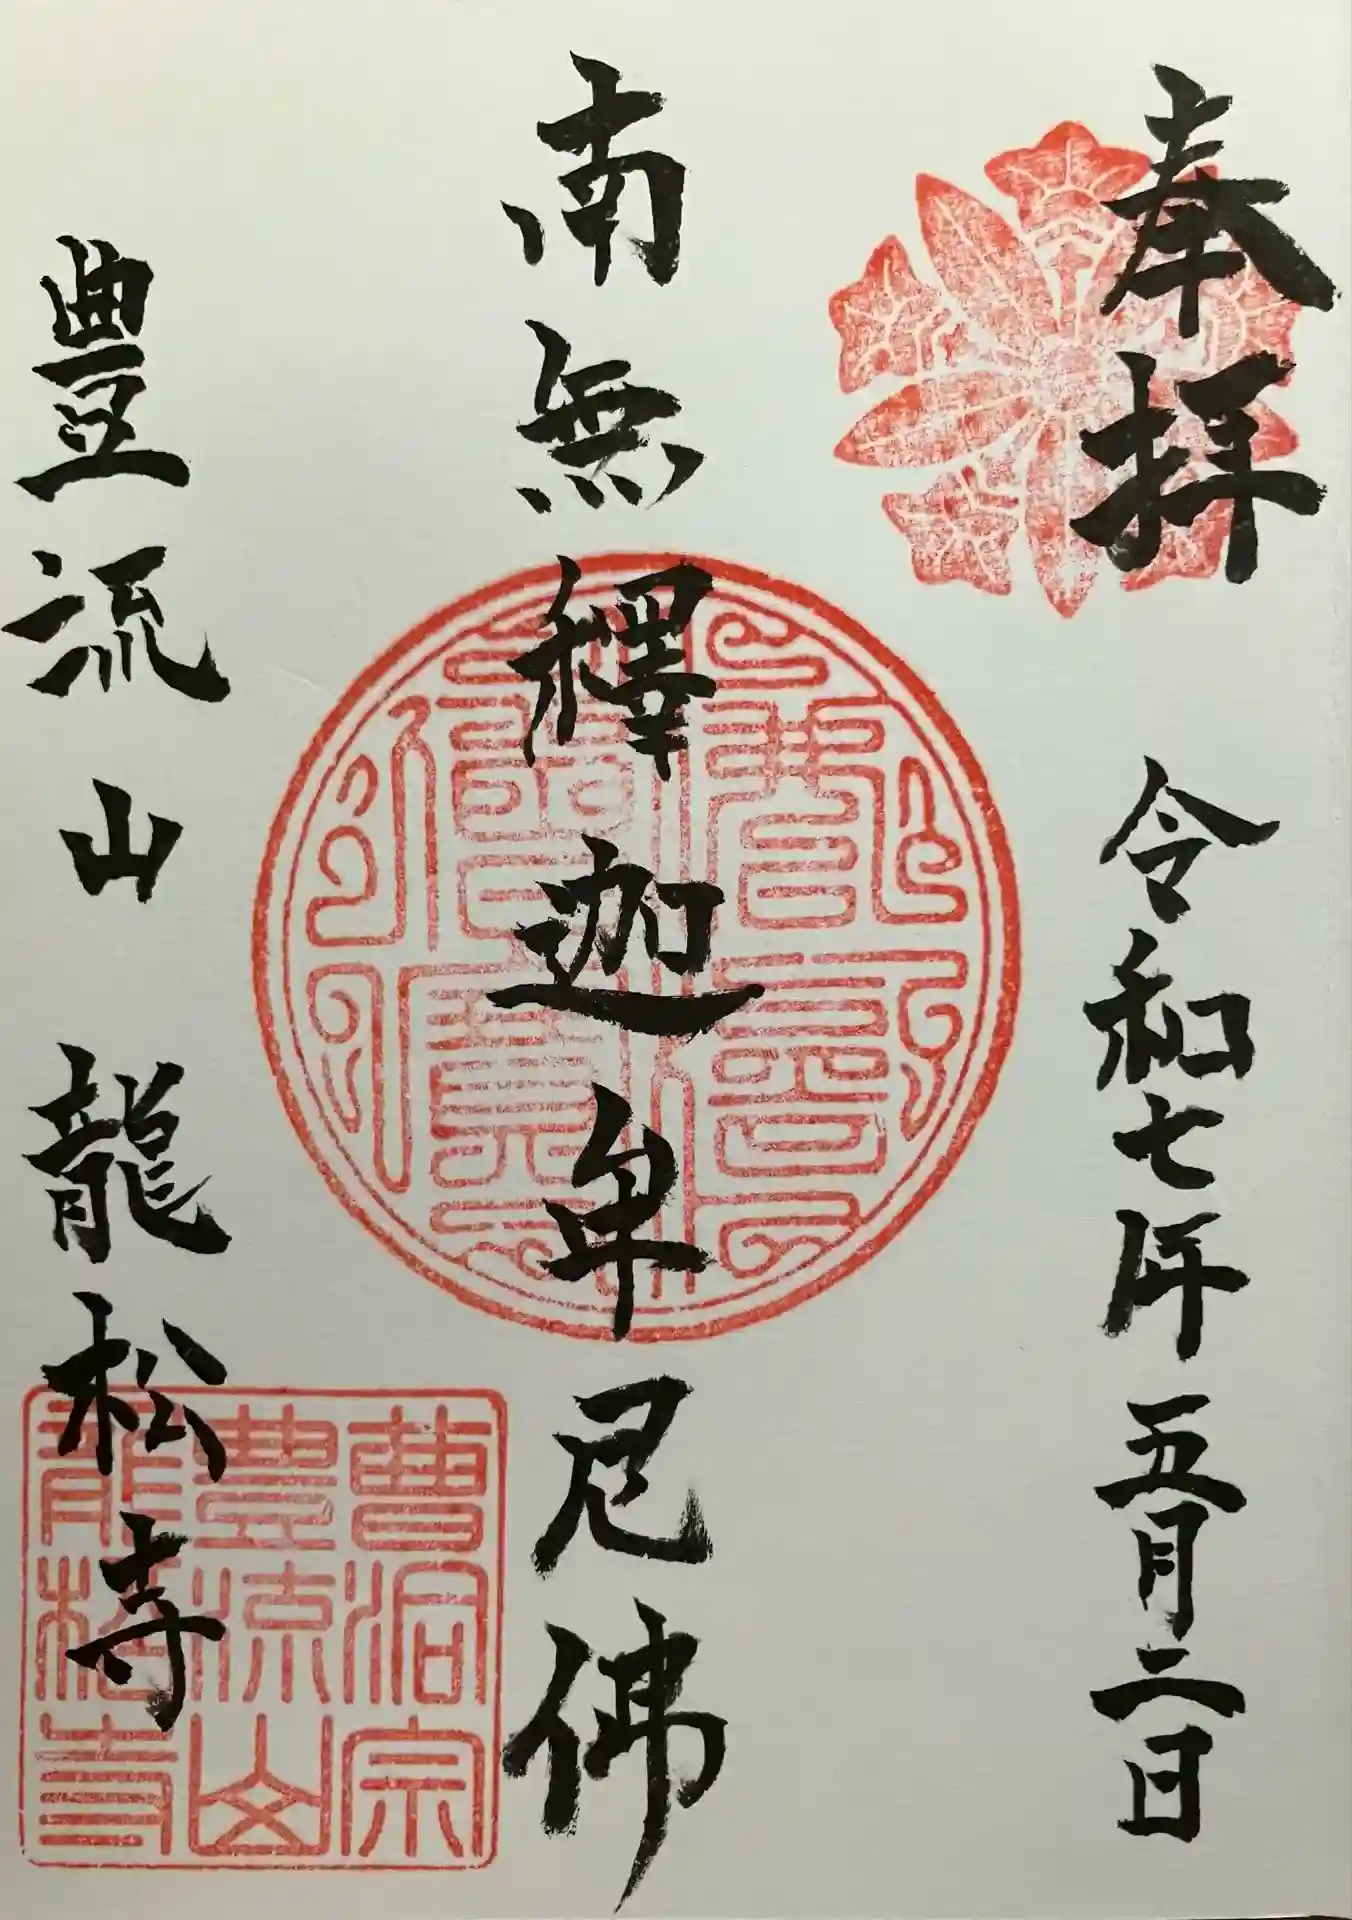 奉拝 令和七年五月二日
南無釋迦牟尼佛
豊流山 龍松寺
曹洞宗
龍松寺